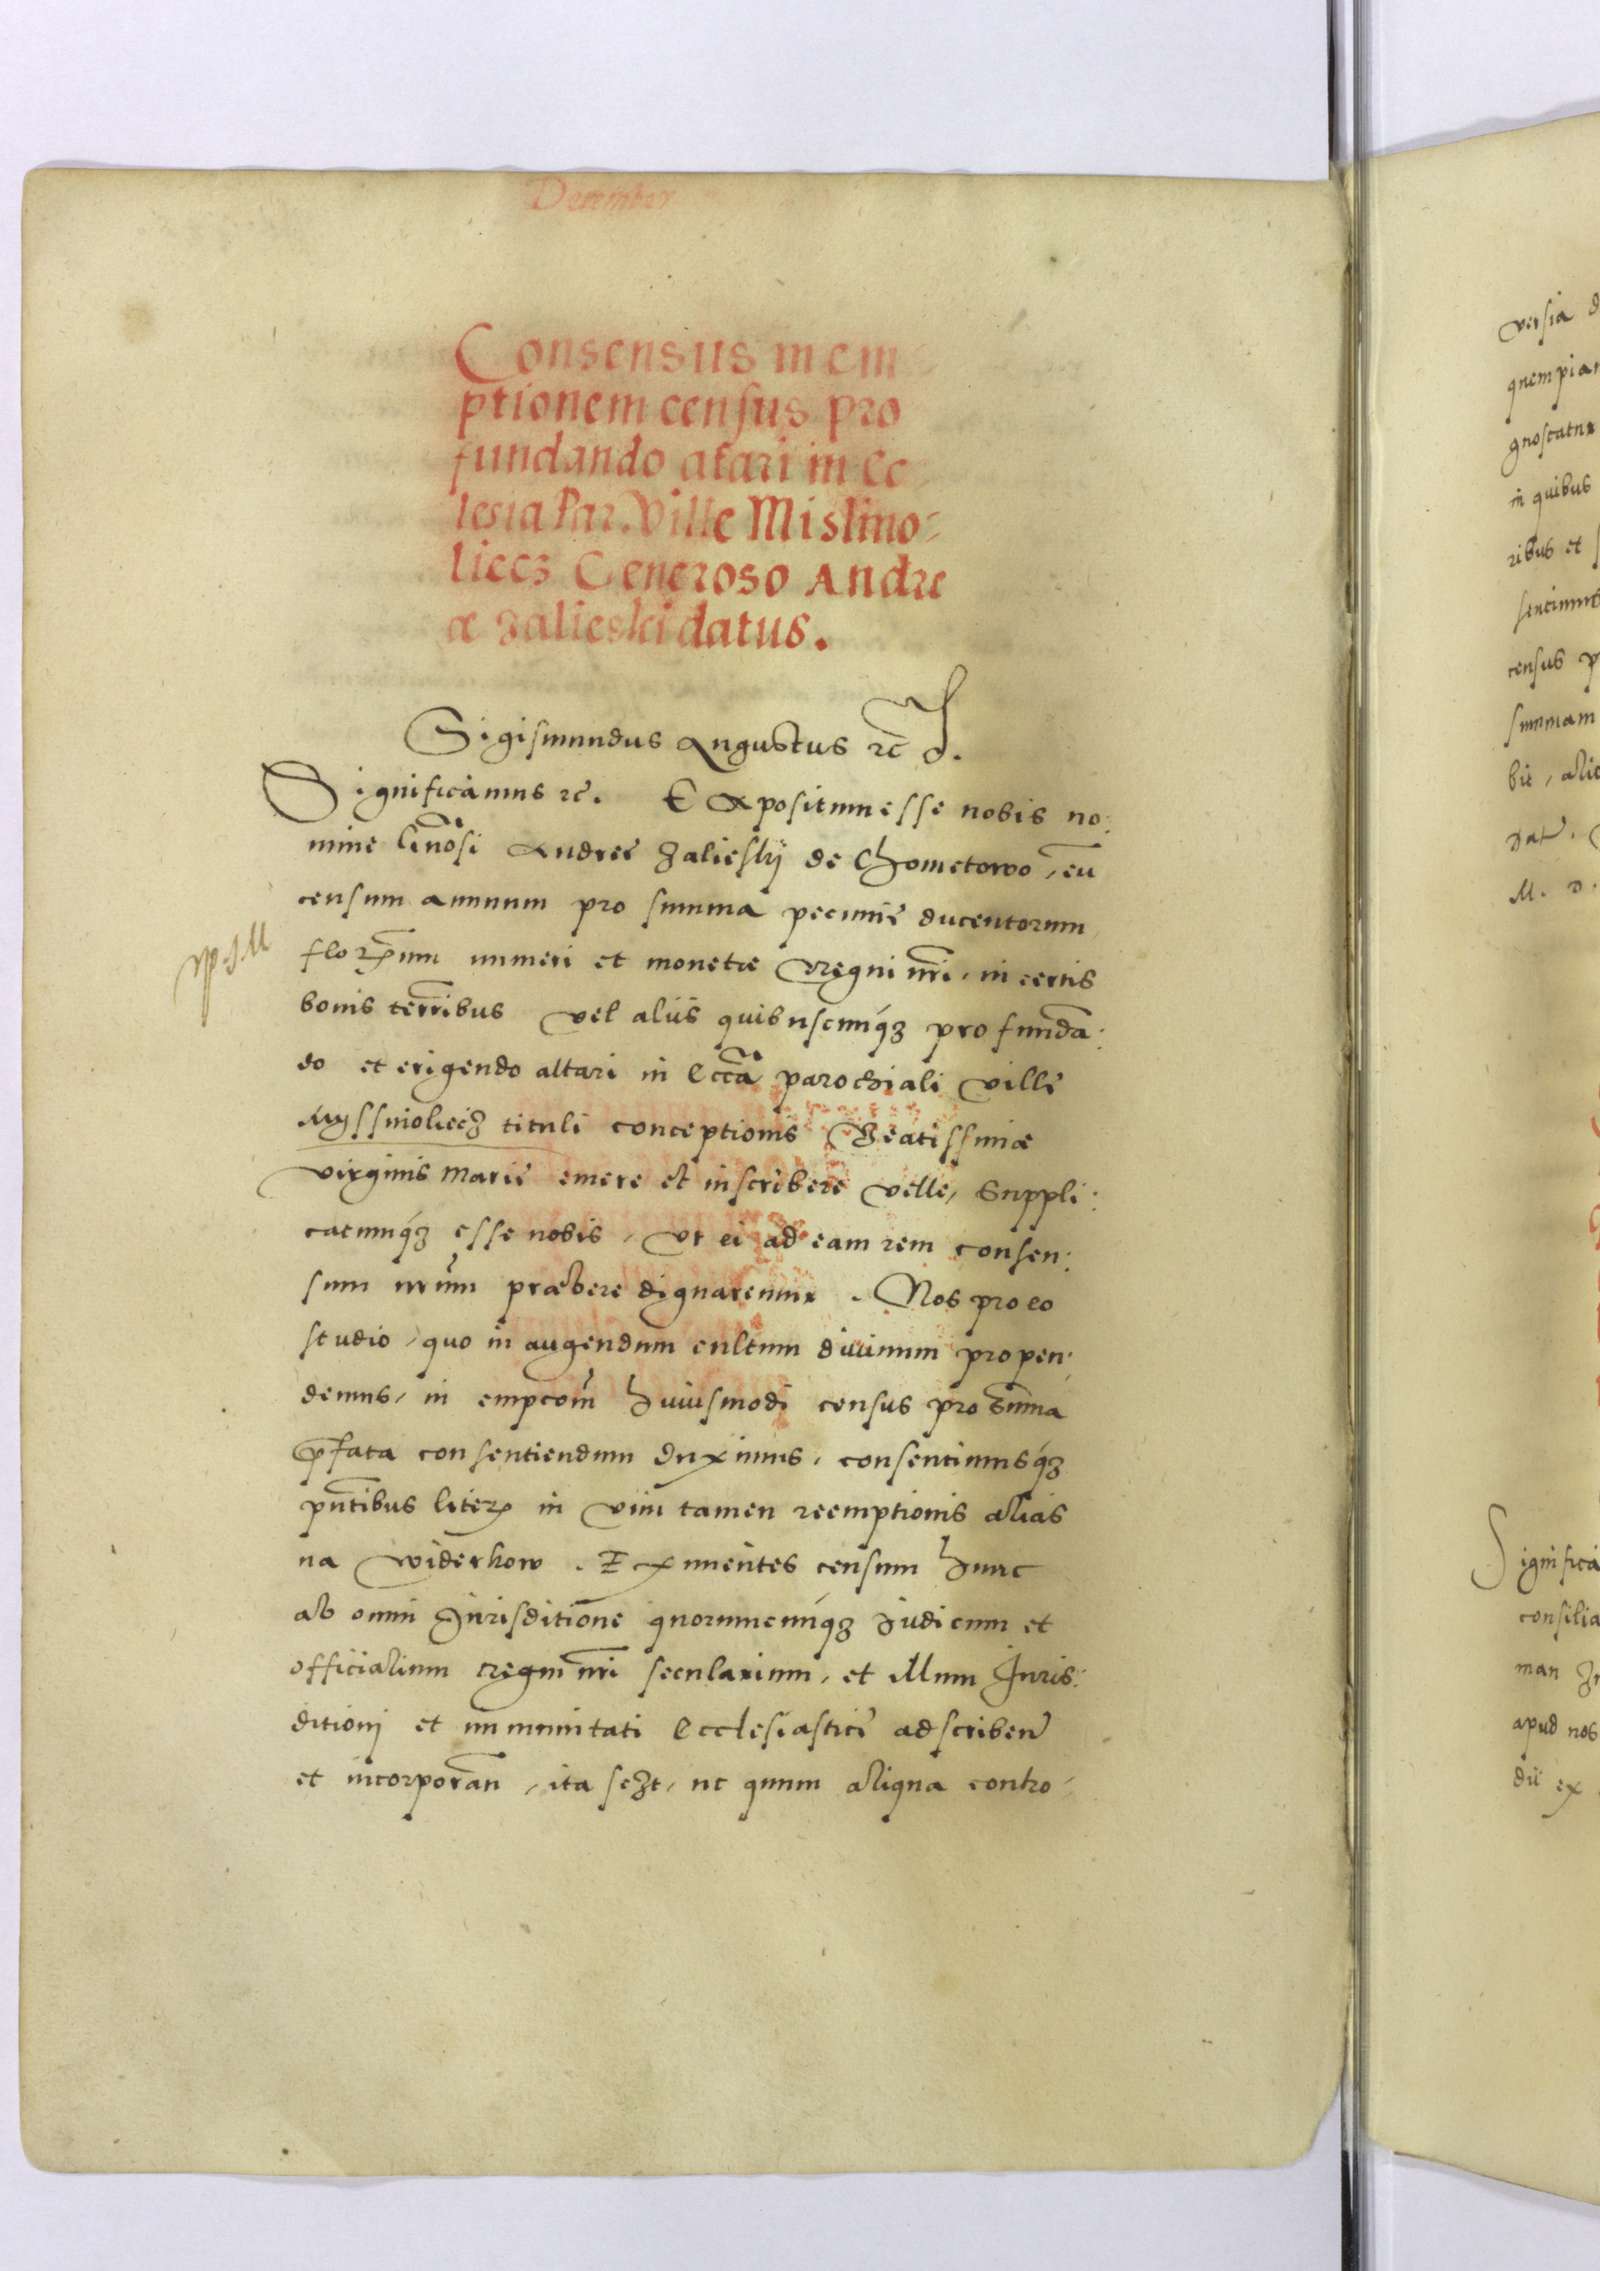 December
Consensus in em
ptionem census pro
fundando altari in Ec
lesia Par. Ville Mislino=
liecz Generoso Andre
æ Zalieski datus.
Sigismundus Augustus rc̄
Significamus rc̄. Expositum esse nobis no:
mine Gn̄osi Andreę Zalieskÿ de Chometowo, eū
censum annuum pro summa pecunię ducentorum
flor̄enum numeri et monetæ Regni nr̄i, in certis
bonis terr̄ibus vel aliis quibuscunq́ꝫ pro fundā:
do et erigendo altari in Eccīa parochiali villę
Myssinoliecz tituli conceptionis Beatissimæ
virginis Marię emere et inscribere velle, Suppli:
catumq́ꝫ esse nobis, vt ei ad eam rem consen:
sum nr̄um præbere dignaremur. Nos pro eo
studio, quo in augendum cultum divinum propen:
demus, in empcōm huiusmodi census pro sum̄a
p̄fata consentiendum duximus, consentimusq́ꝫ
pn̄tibus literꝫ in vim tamen reemptionis alias
na widerkow. Eximentes censum hunc
ab omni Jurisditione quorumcunq́ꝫ Judicum et
officialium regni nr̄i secularium, et illum Juris:
ditioni et immunitati Ecclesiasticę adscriben̄
et incorporan̄, ita scꝫt, ut quum aliqua contro=
versia
quempiam
gnoscatur
in quibus
ribus et
sentimus
census
summam
bit, alic
Dat̄.
M. D.
Significa
consilia
man
apud nos
dii ex